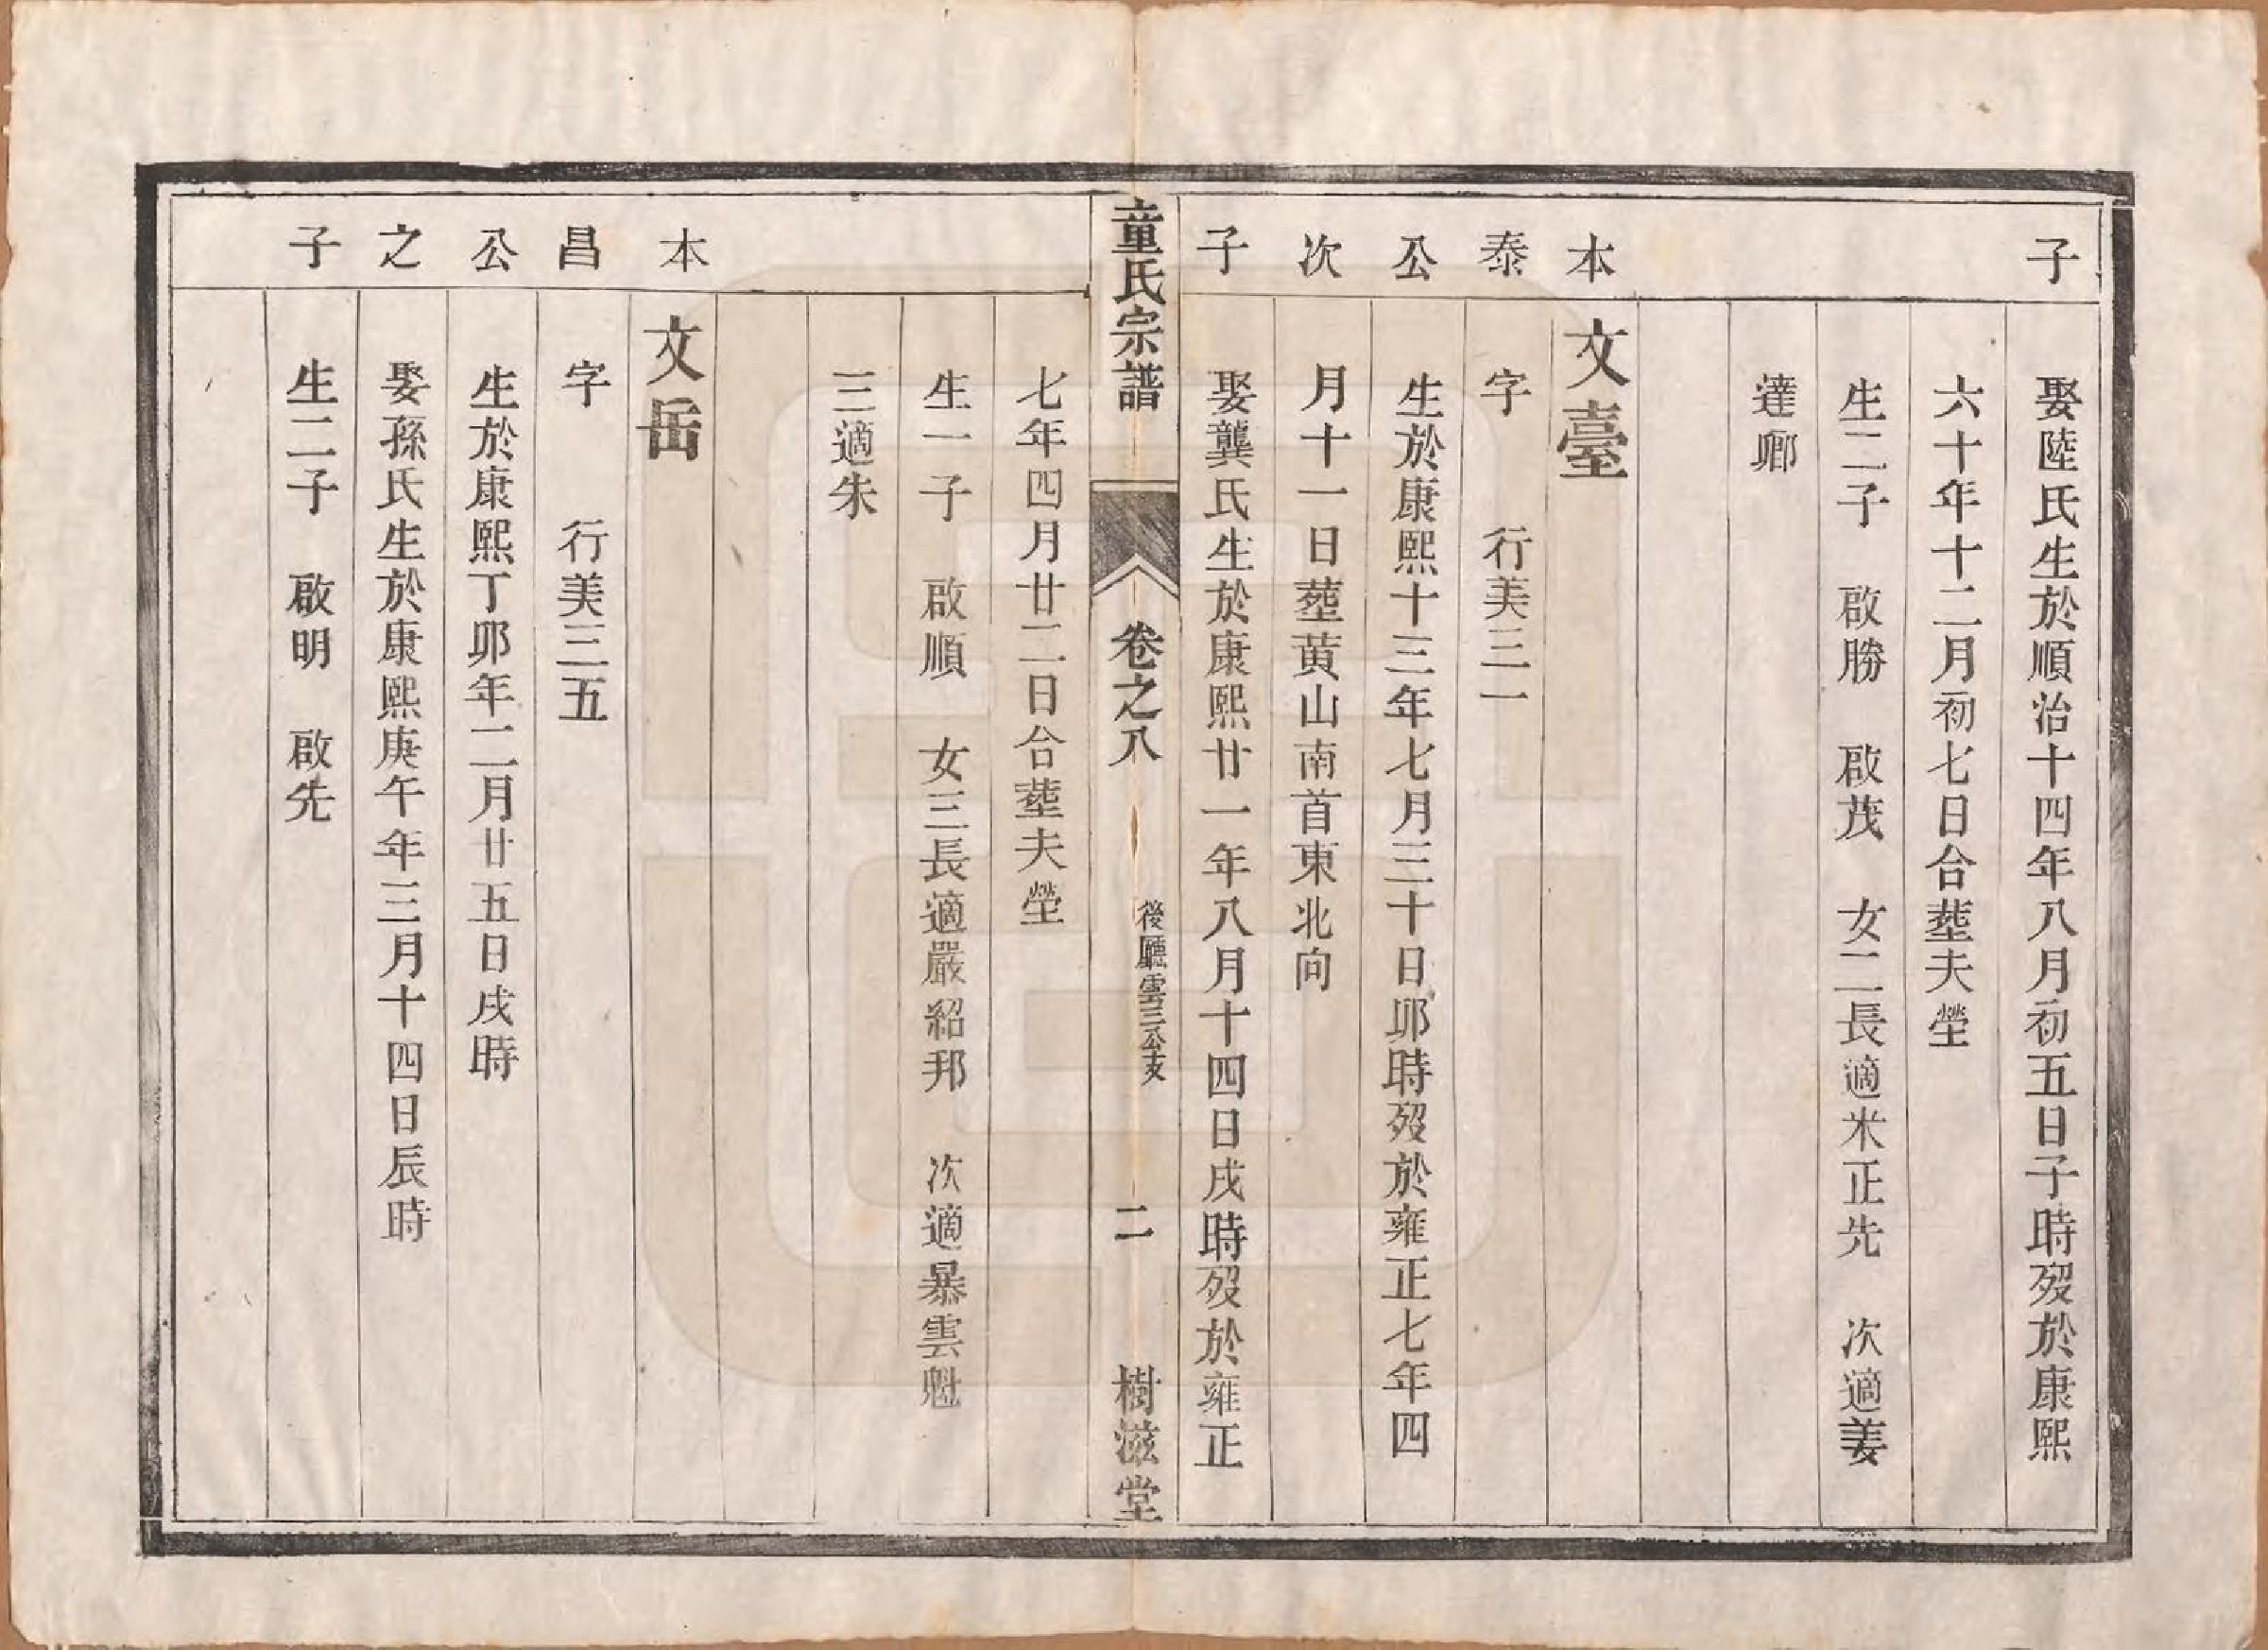 子
娶陸氏生於順治十四年八月初五日子時歿於康熙
六十年十二月初七日合塟夫塋
生二子　啟勝　啟茂　女二長適米正先　次適姜
達卿
本泰公次子
文臺
字　行美三一
生於康熙十三年七月三十日卯時歿於雍正七年四
月十一日塟黃山南首東北向
娶龔氏生於康熙廿一年八月十四日戌時歿於雍正
童氏宗譜　卷之八　後廳雲三公支　二　樹滋堂
七年四月廿二日合塟夫塋
生一子　啟順　女三長適嚴紹邦　次適暴雲魁
三適朱
本昌公之子
文岳
字　行美三五
生於康熙丁卯年二月廿五日戌時
娶孫氏生於康熙庚午年三月十四日辰時
生二子　啟明　啟先